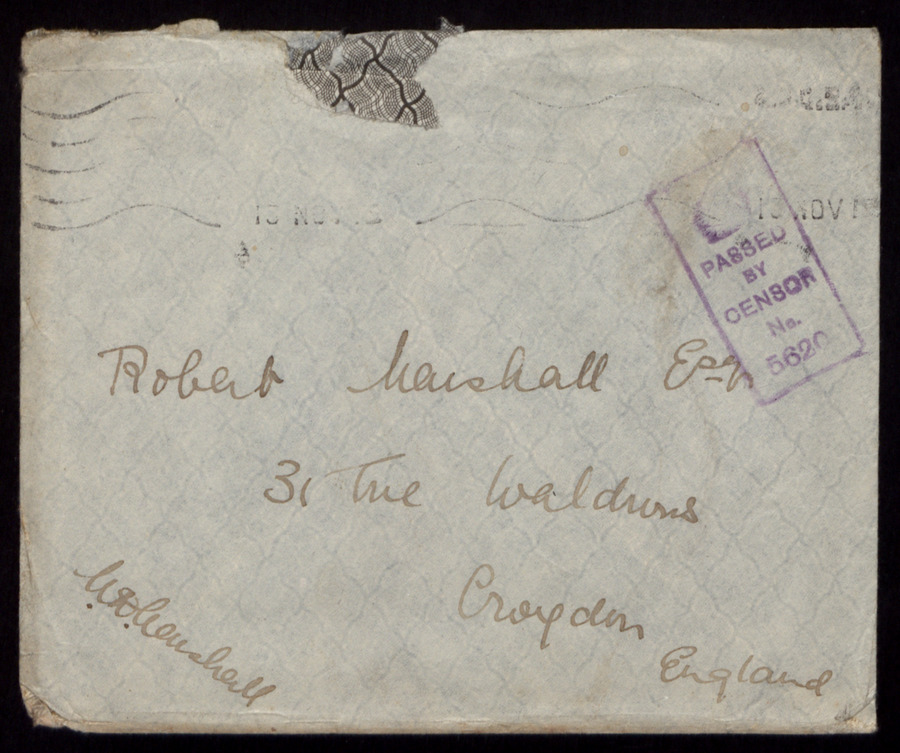 13 NOV 13 NOV 1
PASSED
BY
CENSOR
No.
5620
Robert Marshall Esq
31 The Waldrons
Croydon
England
Marshall